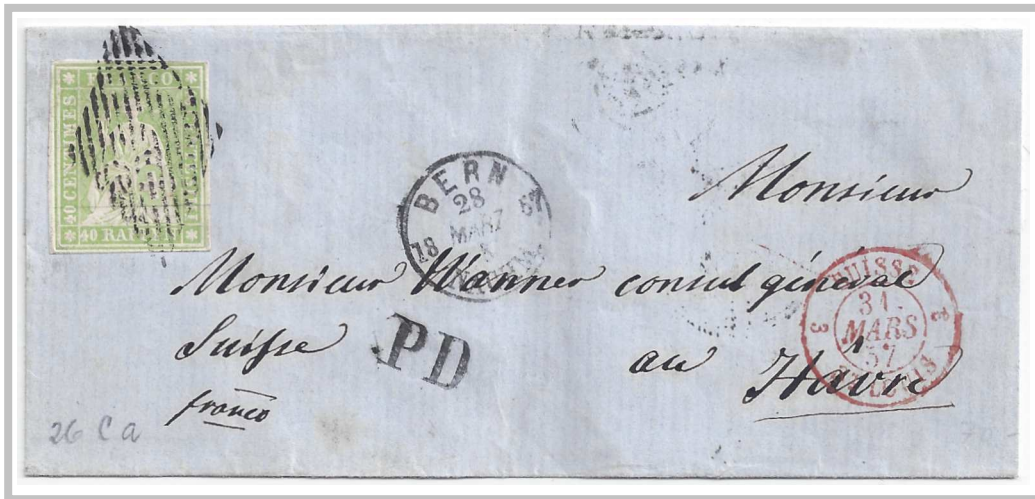 FRANCO
40 CENTIMES
40 RAPPEN
BERN
28
MARZ
18 57
Monsieur
Monsieur Wanner consul général
Suisse
au Hâvre
franco
PD
SUISSE
31
MARS
57
3 3
26 C a